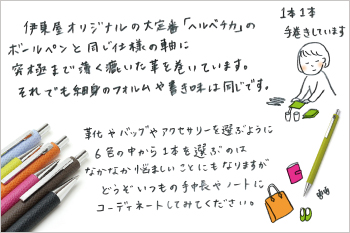 伊東屋オリジナルの大定番「ヘルベチカ」の
ボールペンと同じ仕様の軸に
究極まで薄く漉いた革を巻いています。
それでも細身のフォルムや書き味は同じです。
1本1本
手巻きしています
革化やバッグやアクセサリーを選ぶように
6色の中から1本を選ぶのは
なかなか悩ましいことにもなりますが
どうぞいつもの手帳やノートに
コーディネートしてみてください。